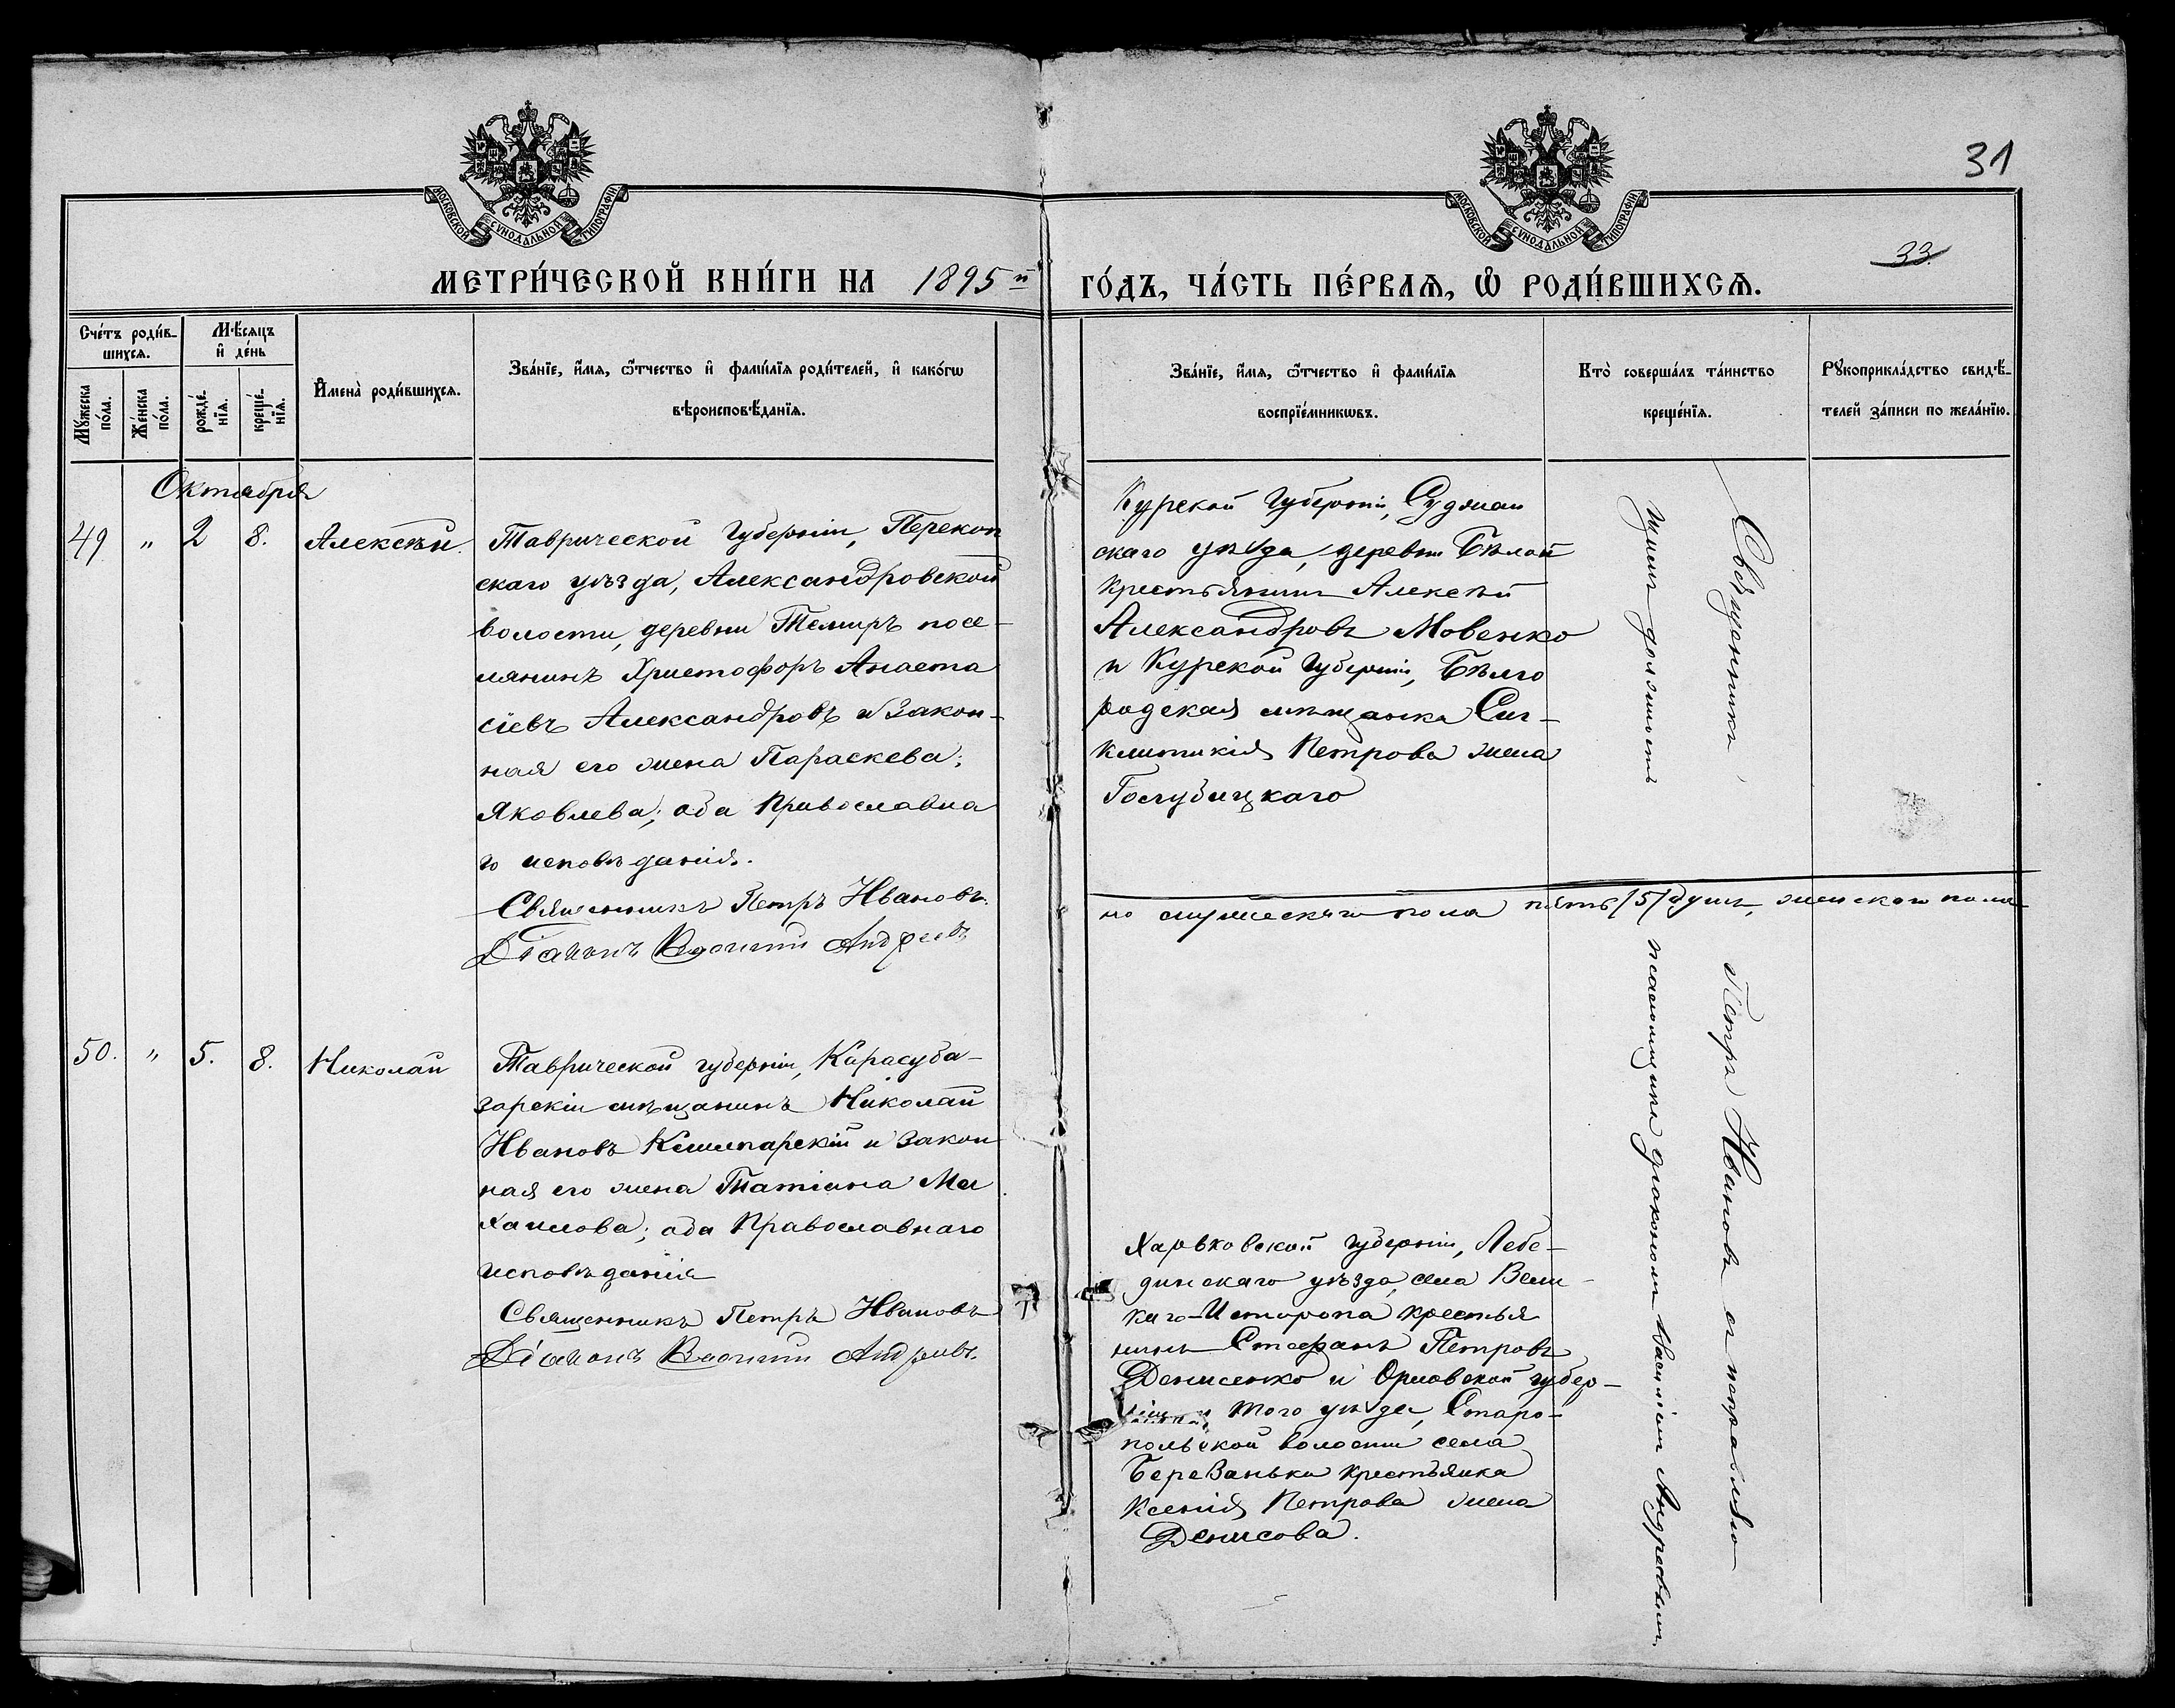 МОСКОВСКОЙ СѴНОДАЛЬНОЙ ТИПОГРАФІИ
МОСКОВСКОЙ СѴНОДАЛЬНОЙ ТИПОГРАФІИ
31
33.
МЕТРИ́ЧЕСКОЙ КНИ́ГИ НА 1895й ГО́ДЪ, ЧА́СТЬ ПЕ́РВАѦ, Ѿ РОДИ́ВШИХСѦ.
Сче́тъ роди́в-
шихсѧ.
Мѣ́сѧцъ
и҆ де́нь
Мꙋ́жеска
по́ла.
Же́нска
по́ла.
рожде́-
нїѧ.
креще́-
нїѧ.
И҆мена̀ роди́вшихсѧ.
Зва́нїе, и҆́мѧ, ѻ҆́тчество и҆ фами́лїѧ роди́телей, и҆ како́гѡ
вѣроисповѣ́данїѧ.
Зва́нїе, и҆́мѧ, ѻ҆́тчество и҆ фами́лїѧ
воспрїе́мникѡвъ.
Кто̀ соверша́лъ та́инство
креще́нїѧ.
Рꙋкоприкла́дство свидѣ́-
телей за́писи по жела́нїю.
Октября
49 " 2 8. Алексѣй.
Таврической Губерніи, Перекоп
скаго уѣзда, Александровской
волости, деревни Темиръ посе-
лянинъ Христофоръ Анаста
сіевъ Александровъ и закон-
ная его жена Параскева,
Яковлева; оба Православна
го исповѣданія.
Священникъ Петръ Ивановъ.
Діаконъ Василій Андреевъ
Курской Губерніи, Суджан
скаго уѣзда, деревни Бѣлой
крестьянинъ Алексѣй
Александровъ Мовенко
и Курской Губерніи, Бѣлго
родская мѣщанка Син-
клитикія Петрова жена
Голубицкаго
но мужескаго пола пять /5/ душъ, женскаго пола
50. " 5. 8. Николай
Таврической губерніи, Карасуба-
зарскій мѣщанинъ Николай
Ивановъ Кишпарскій и закон
ная его жена Татіана Ми
хаилова; оба Православнаго
исповѣданія
Священникъ Петръ Ивановъ
Діаконъ Василій Андреевъ.
Харьковской губерніи, Лебе-
динскаго уѣзда, села Вели-
каго-Исторопа крестья
нинъ Стефанъ Петровъ
Денисенко и Орловской губер-
ніи и того уѣзда, Старо-
польской волости села
Березаньки крестьянка
Ксенія Петрова жена
Денисова.
Священникъ Петръ Ивановъ съ исправляю
щимъ должность псаломщика діакономъ Василіемъ Андреевымъ.